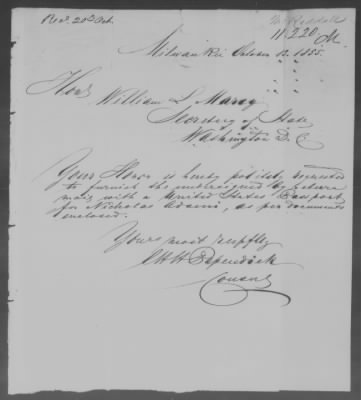 Rec'd 20th Oct.
11.220
Milwaukie October 12. 1855.
Hon.
William L Marcy
Secretary of State
Washington D. C
Your Honor is hereby politely requested
to furnish the undersigned by return
mail with a United States Passport
for Nicholas Adami, as per documents
enclosed.
Yours most respfly
Papendiek